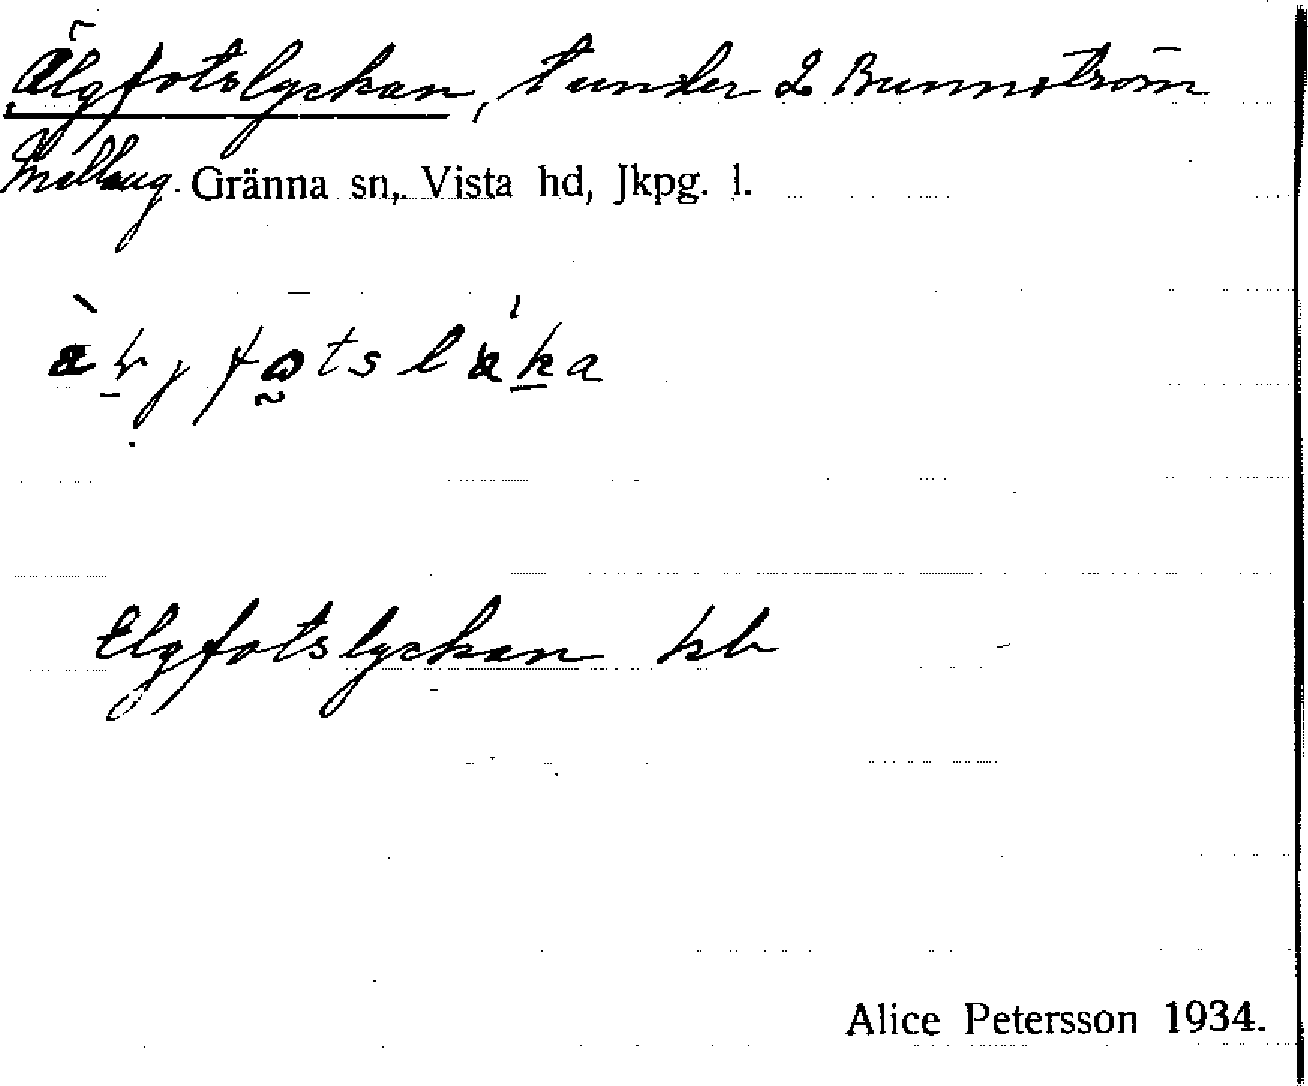 Älgfotslyckan, t under 2 Bunnström
Mellang. Gränna sn, Vista hd, Jkpg. l.
Elgfotslyckan kb
Alice Petersson 1934.